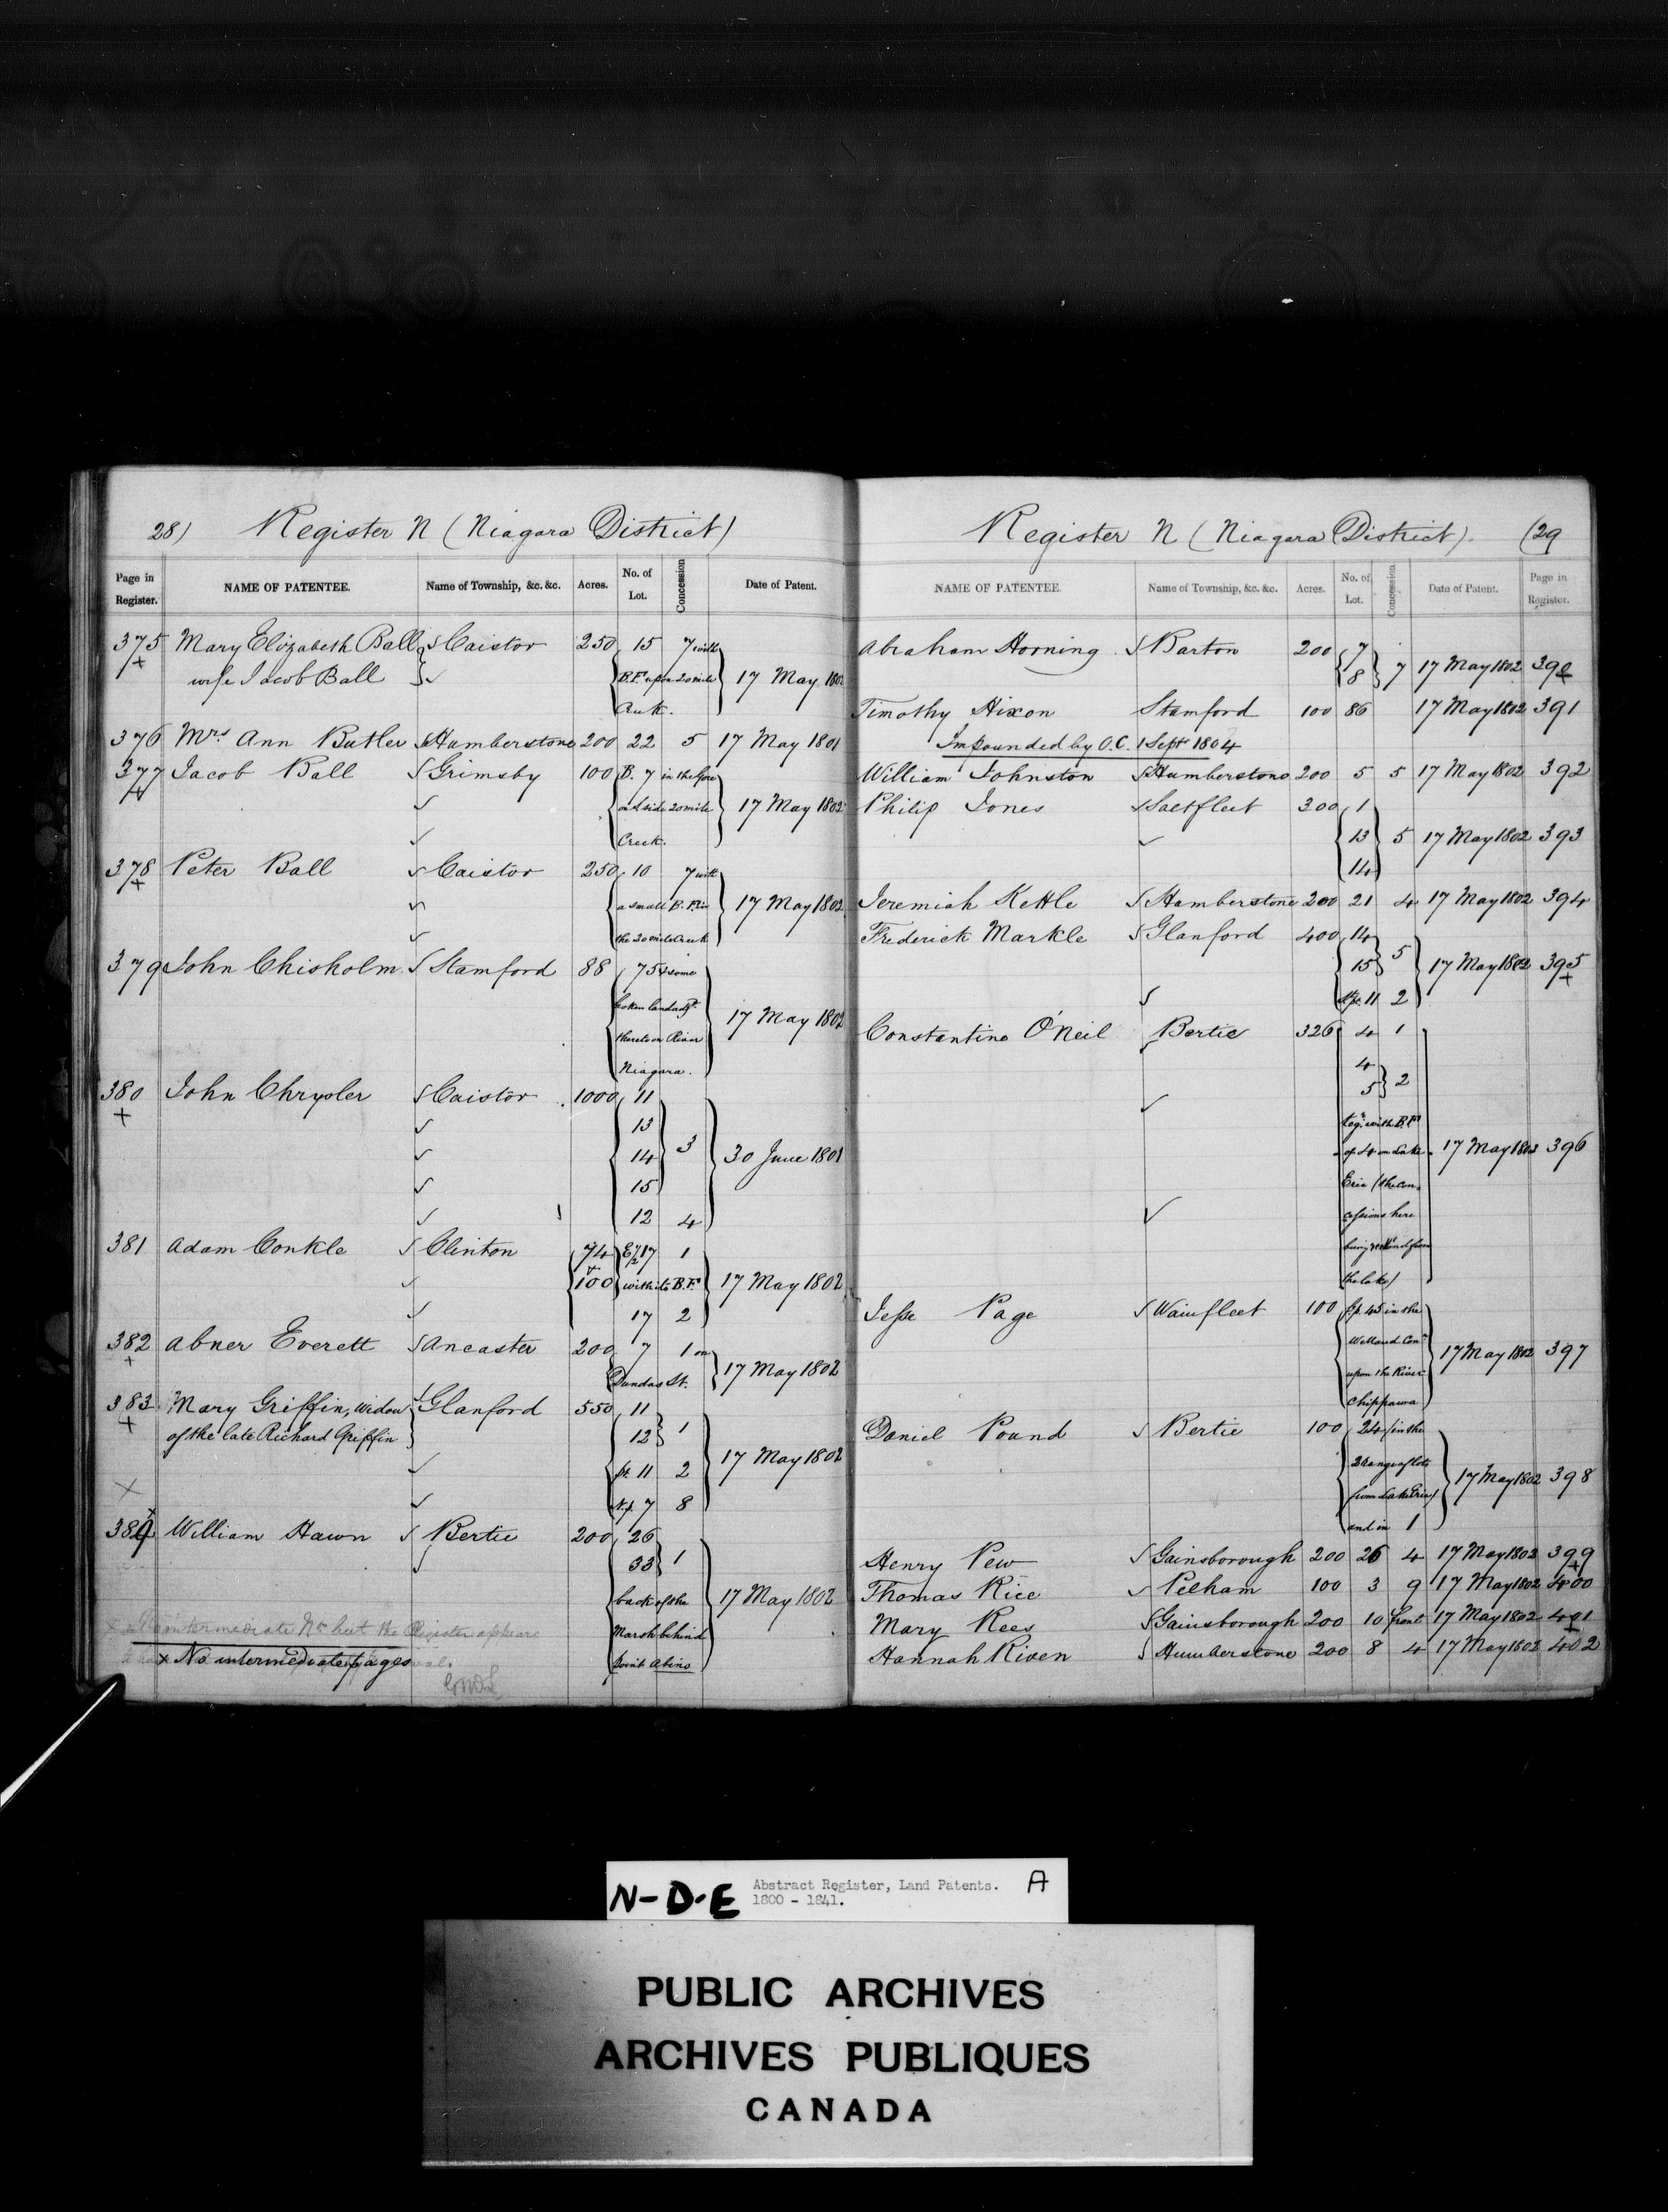 28) Register N (Niagara District)
Page in Register. NAME OF PATENTEE. Name of Township, &c. &c. Acres. No. of Lot. Concession Date of Patent.
375 Mary Elizabeth Ball Caistor 250 15 7 with
+ wife Jacob Ball B.F. upon 20 mile 17 May 1802
Creek.
376 Mrs Ann Butler Humberstone 200 22 5 17 May 1801
377 Jacob Ball Grimsby 100 B. 7 in the Gore
+ 20 mile 17 May 1802
Creek.
378 Peter Ball Caistor 250 10 7 with
+ a small B.F. in 17 May 1802
the 20 mile Creek
379 John Chisholm Stamford 88 75 & some
broken land adjt
thereto on River 17 May 1802
Niagara.
380 John Chrysler Caistor 1000 11
+ 13
14 3 30 June 1801
15
12 4
381 Adam Conkle Clinton 74 E 1/2 17 1
& 100 with its B.F. 17 May 1802
17 2
382 Abner Everett Ancaster 200 7 1 on
+ Dundas St. 17 May 1802
383 Mary Griffin, Widow Glanford 550 11
+ of the late Richard Griffin 12 1
pt. 11 2 17 May 1802
N.p. 7 8
389 William Hawn Bertie 200 26
33 1
back of the 17 May 1802
Marsh behind
point Abino
intermediate No but the Register appears
x No intermediate pages
Register N (Niagara District). (29
NAME OF PATENTEE. Name of Township, &c. &c. Acres. No. of Lot. Concession Date of Patent. Page in Register.
Abraham Horning Barton 200 7
8 7 17 May 1802 390
Timothy Hixon Stamford 100 86 17 May 1802 391
Impounded by O.C. 1 Sept 1804
William Johnston Humberstone 200 5 5 17 May 1802 392
Philip Jones Saltfleet 300 1
13 5 17 May 1802 393
14
Jeremiah Kettle Humberstone 200 21 4 17 May 1802 394
Frederick Markle Glanford 400 14
15 5 17 May 1802 395
11 2 +
Constantine O'Neil Bertie 326 4 1
4
5 2
togr with B.Ft
of 4 on Lake 17 May 1802 396
Erie (the con
cessions here
being reckoned from
the lake)
Jesse Page Wainfleet 100 pt. 45 in the
Welland Con
upon the River 17 May 1802 397
Chippawa
Daniel Pound Bertie 100 24 (in the
2 range of lots
from Lake Erie) 17 May 1802 398
and in 1
Henry Pew Gainsborough 200 26 4 17 May 1802 399
Thomas Rice Pelham 100 3 9 17 May 1802 400
Mary Rees Gainsborough 200 10 front 17 May 1802 401
Hannah Risen Humberstone 200 8 4 17 May 1802 402
N-D-E Abstract Register, Land Patents. A
1800 - 1841.
PUBLIC ARCHIVES
ARCHIVES PUBLIQUES
CANADA